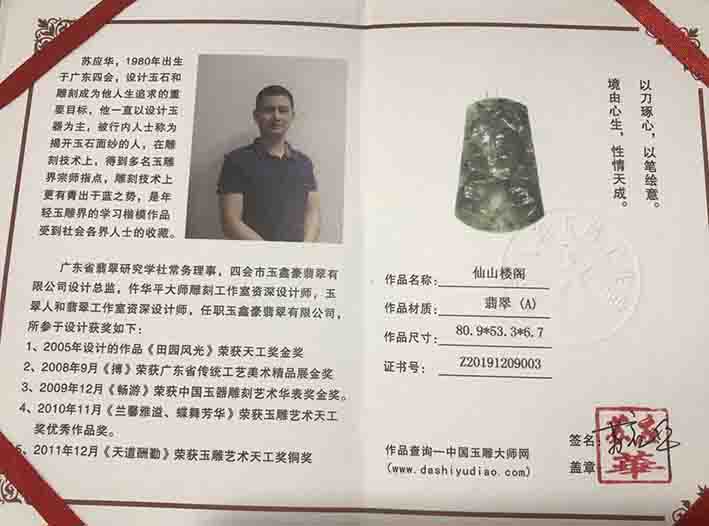 苏应华，1980年出生
于广东四会，设计玉石和
雕刻成为他人生追求的重
要目标，他一直以设计玉
器为主，被行内人士称为
揭开玉石面纱的人，在雕
刻技术上，得到多名玉雕
界宗师指点，雕刻技术上
更有青出于蓝之势，是年
轻玉雕界的学习楷模作品
受到社会各界人士的收藏。
广东省翡翠研究学社常务理事，四会市玉鑫豪翡翠有
限公司设计总监，仵华平大师雕刻工作室资深设计师，玉
翠人和翡翠工作室资深设计师，任职玉鑫豪翡翠有限公司，
所参于设计获奖如下：
1、2005年设计的作品《田园风光》荣获天工奖金奖
2、2008年9月《搏》荣获广东省传统工艺美术精品展金奖
3、2009年12月《畅游》荣获中国玉器雕刻艺术华表奖金奖。
4、2010年11月《兰馨雅溢、蝶舞芳华》荣获玉雕艺术天工
奖优秀作品奖。
5、2011年12月《天道酬勤》荣获玉雕艺术天工奖铜奖
以刀琢心，以笔绘意。
境由心生，性情天成。
作品名称：仙山楼阁
作品材质：翡翠（A）
作品尺寸：80.9*53.3*6.7
证书号：Z20191209003
签名：
盖章：
华
作品查询一中国玉雕大师网
(www.dashiyudiao.com)